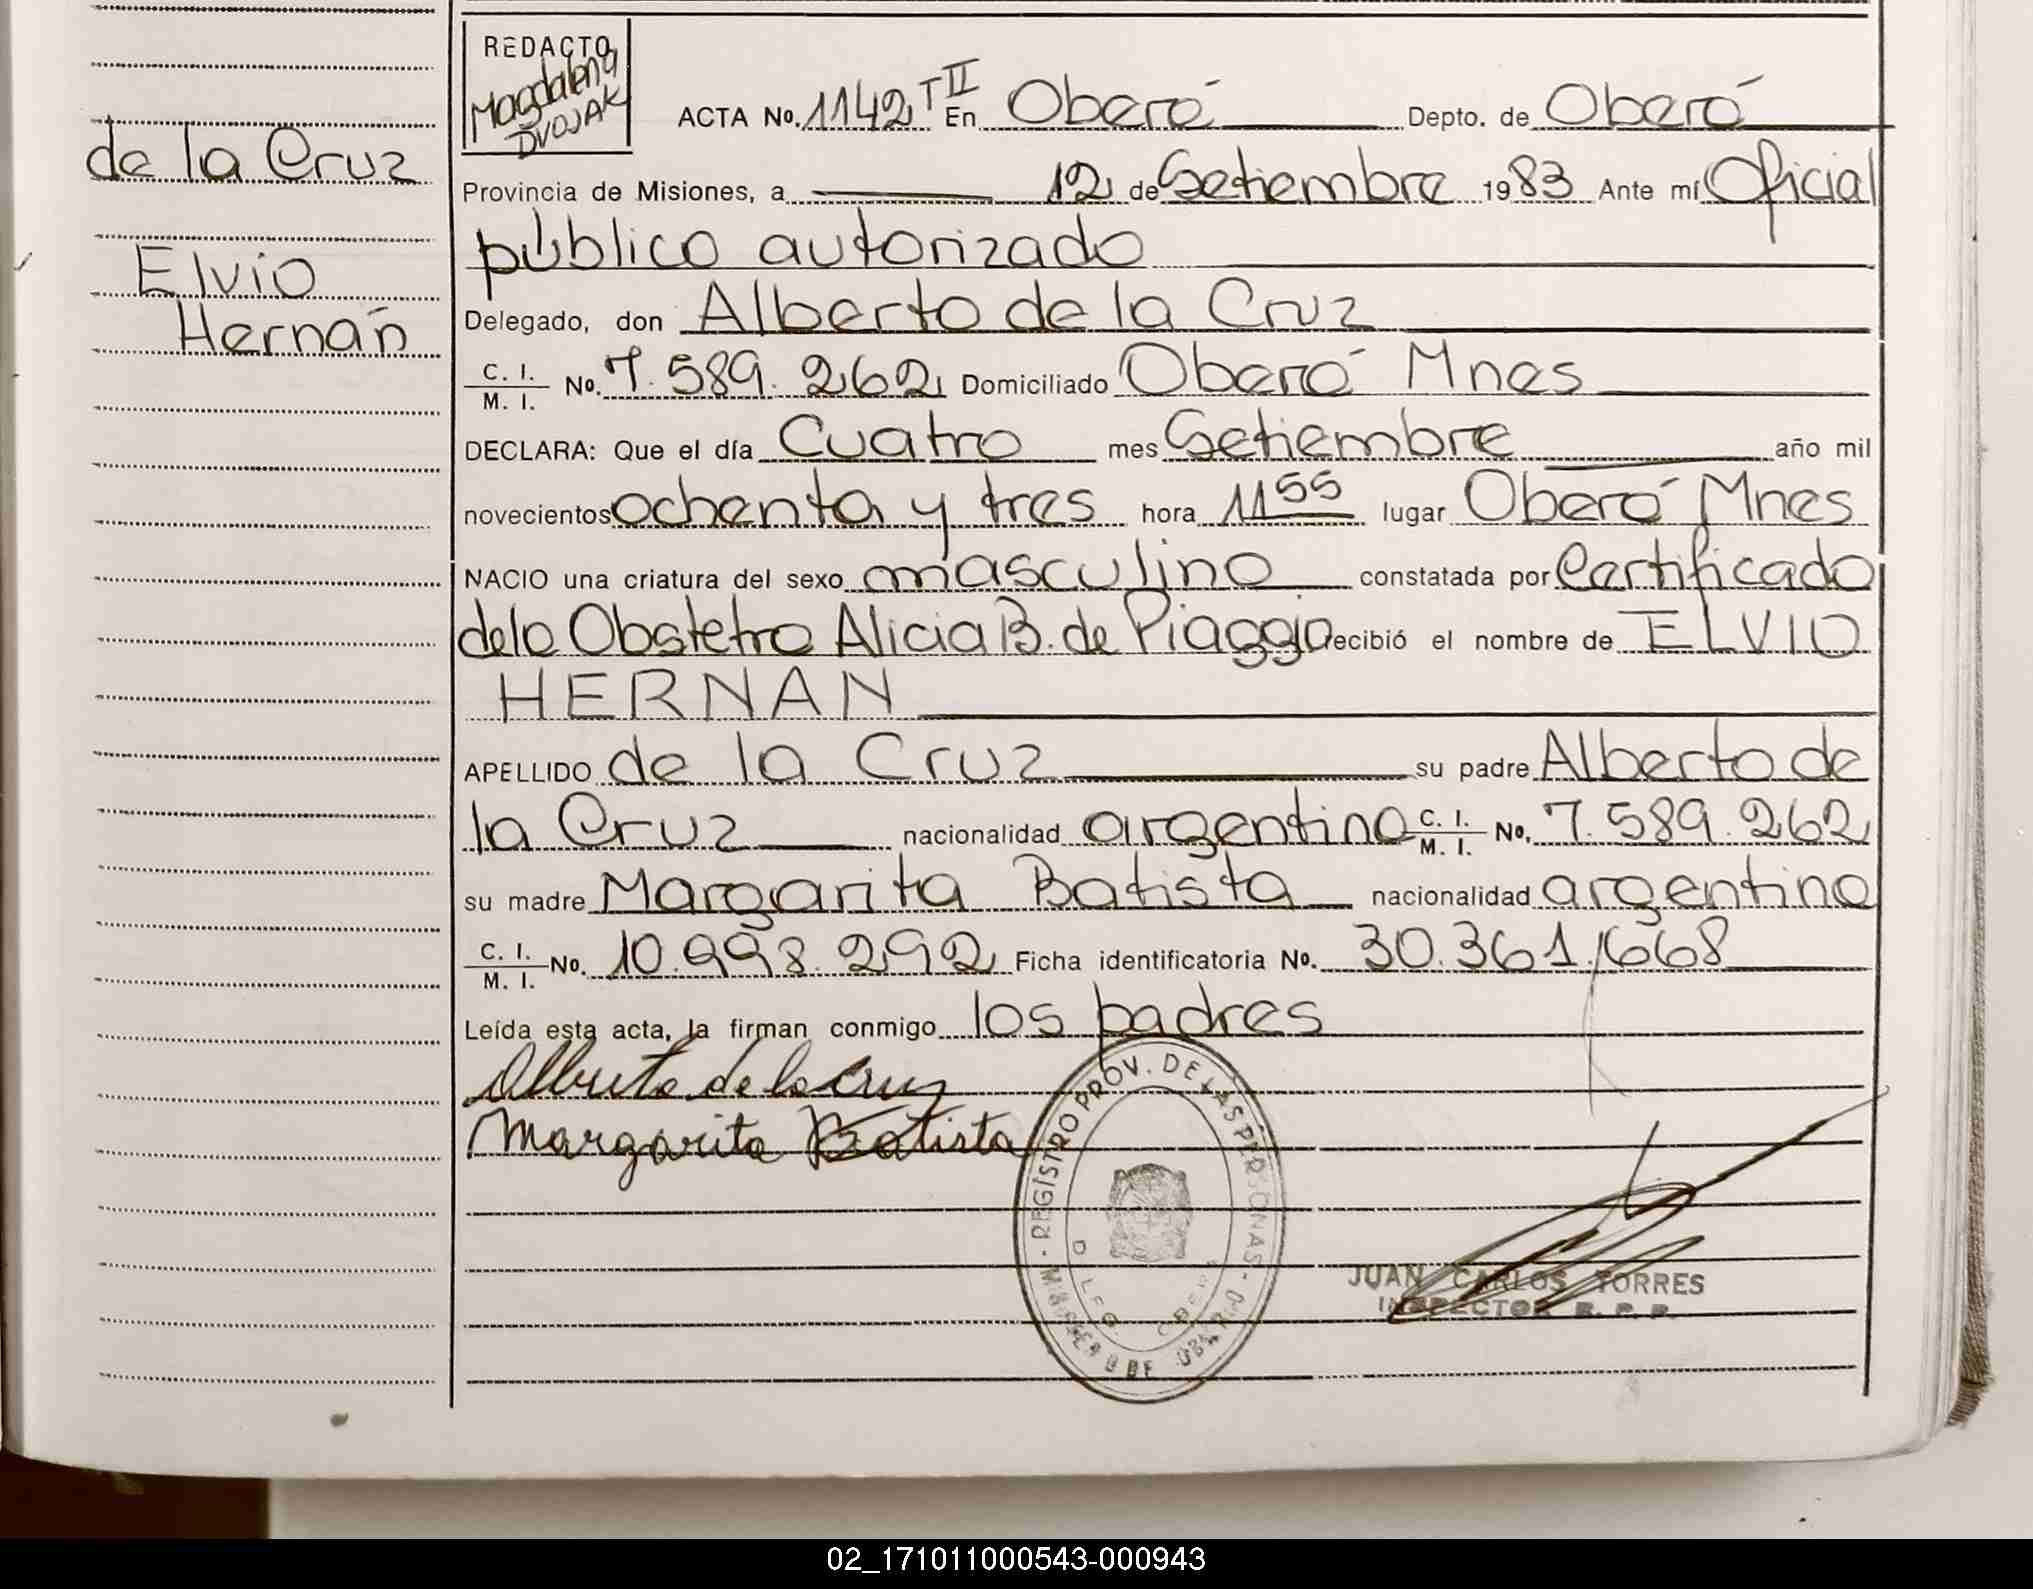 de la Cruz
Elvio
Hernán
REDACTO
Magdalena
DVOJAK
ACTA No. 1142 T II En Oberá Depto. de Oberá
Provincia de Misiones, a 12 de Setiembre 1983 Ante mí Oficial
público autorizado
Delegado, don Alberto de la Cruz
C. I. / M. I. No. 7.589.262 Domiciliado Oberá Mnes
DECLARA: Que el día Cuatro mes Setiembre año mil
novecientos ochenta y tres hora 11 55 lugar Oberá Mnes
NACIO una criatura del sexo masculino constatada por Certificado
de la Obstetra Alicia B. de Piaggio recibió el nombre de ELVIO
HERNAN
APELLIDO de la Cruz su padre Alberto de
la Cruz nacionalidad argentina C. I. / M. I. No. 7.589.262
su madre Margarita Batista nacionalidad argentina
C. I. / M. I. No. 10.998.292 Ficha identificatoria No. 30.361.668
Leída esta acta, la firman conmigo los padres
Alberto de la Cruz
Margarita Batista
REGISTRO PROV. DE LAS PERSONAS
JUAN CARLOS TORRES
INSPECTOR R. P. P.
02_171011000543-000943